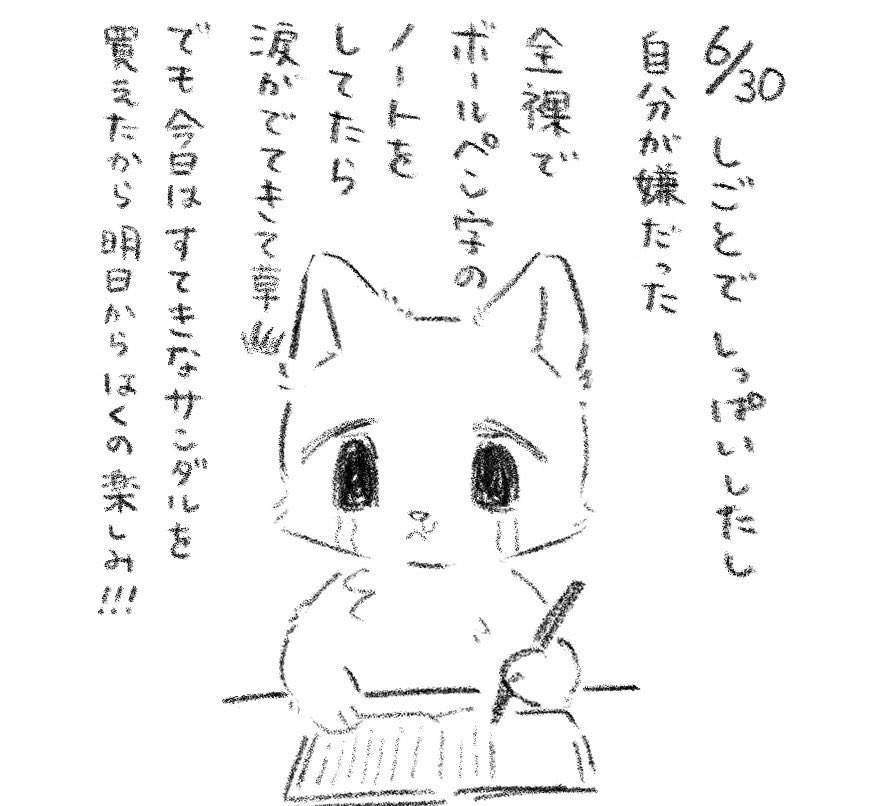 6/30 しごとで しっぱいしたし
自分が嫌だった
全裸で
ボールペン字の
ノートを
してたら
涙がでてきて草
でも 今日は すてきなサンダルを
買えたから 明日からはくの楽しみ!!!